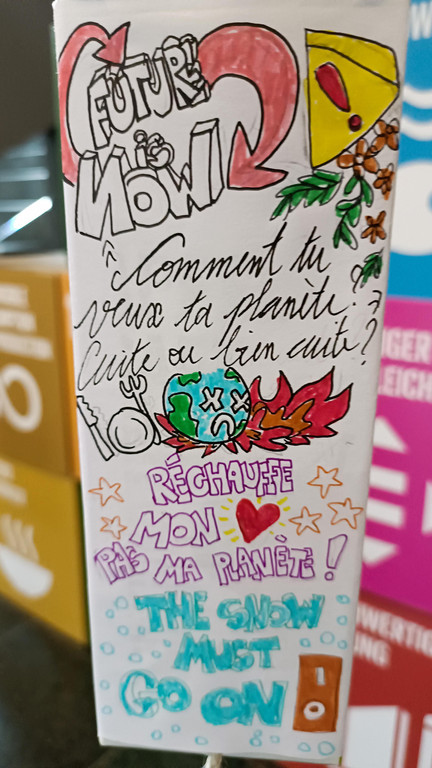 FUTURE
is
NOW!
Comment tu
veux ta planète?
Cuite ou bien cuite?
RÉCHAUFFE
MON
PAS MA PLANÈTE!
THE SNOW
MUST
GO ON